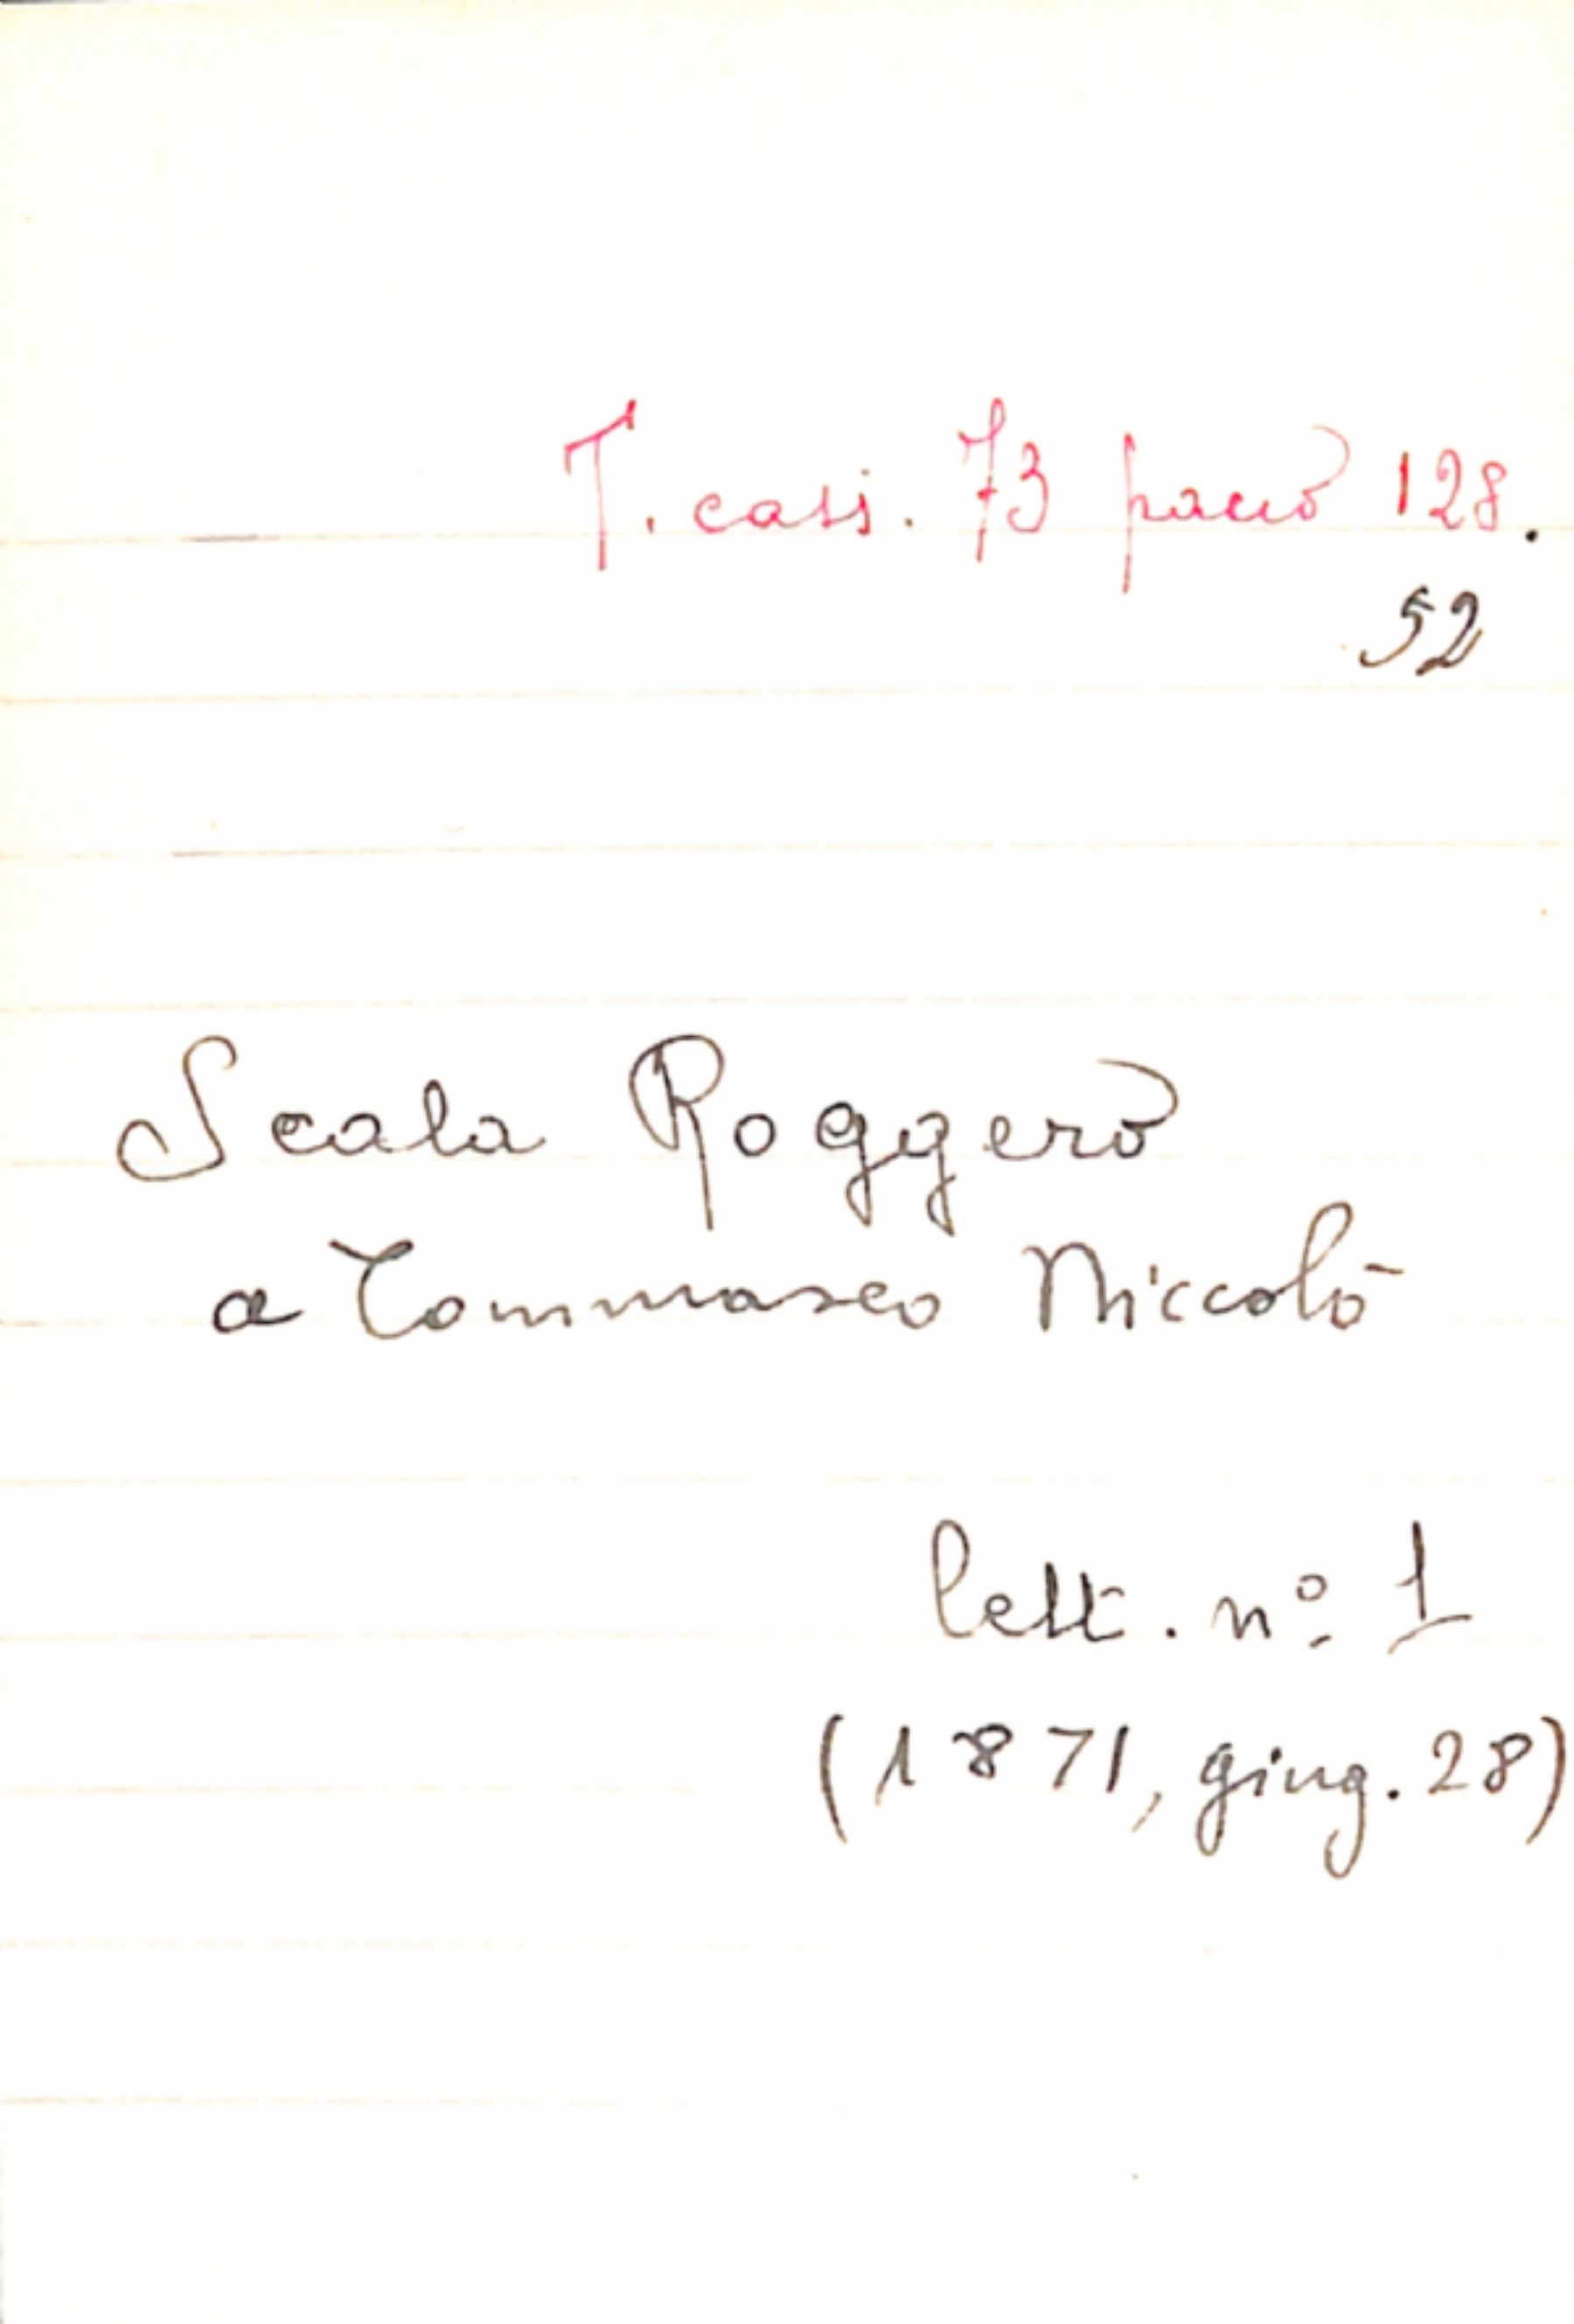 T. cass. 73 pacco 128.
52
Scala Roggero
a Tommaseo Niccolò
lett. nº 1
(1871, giug. 28)